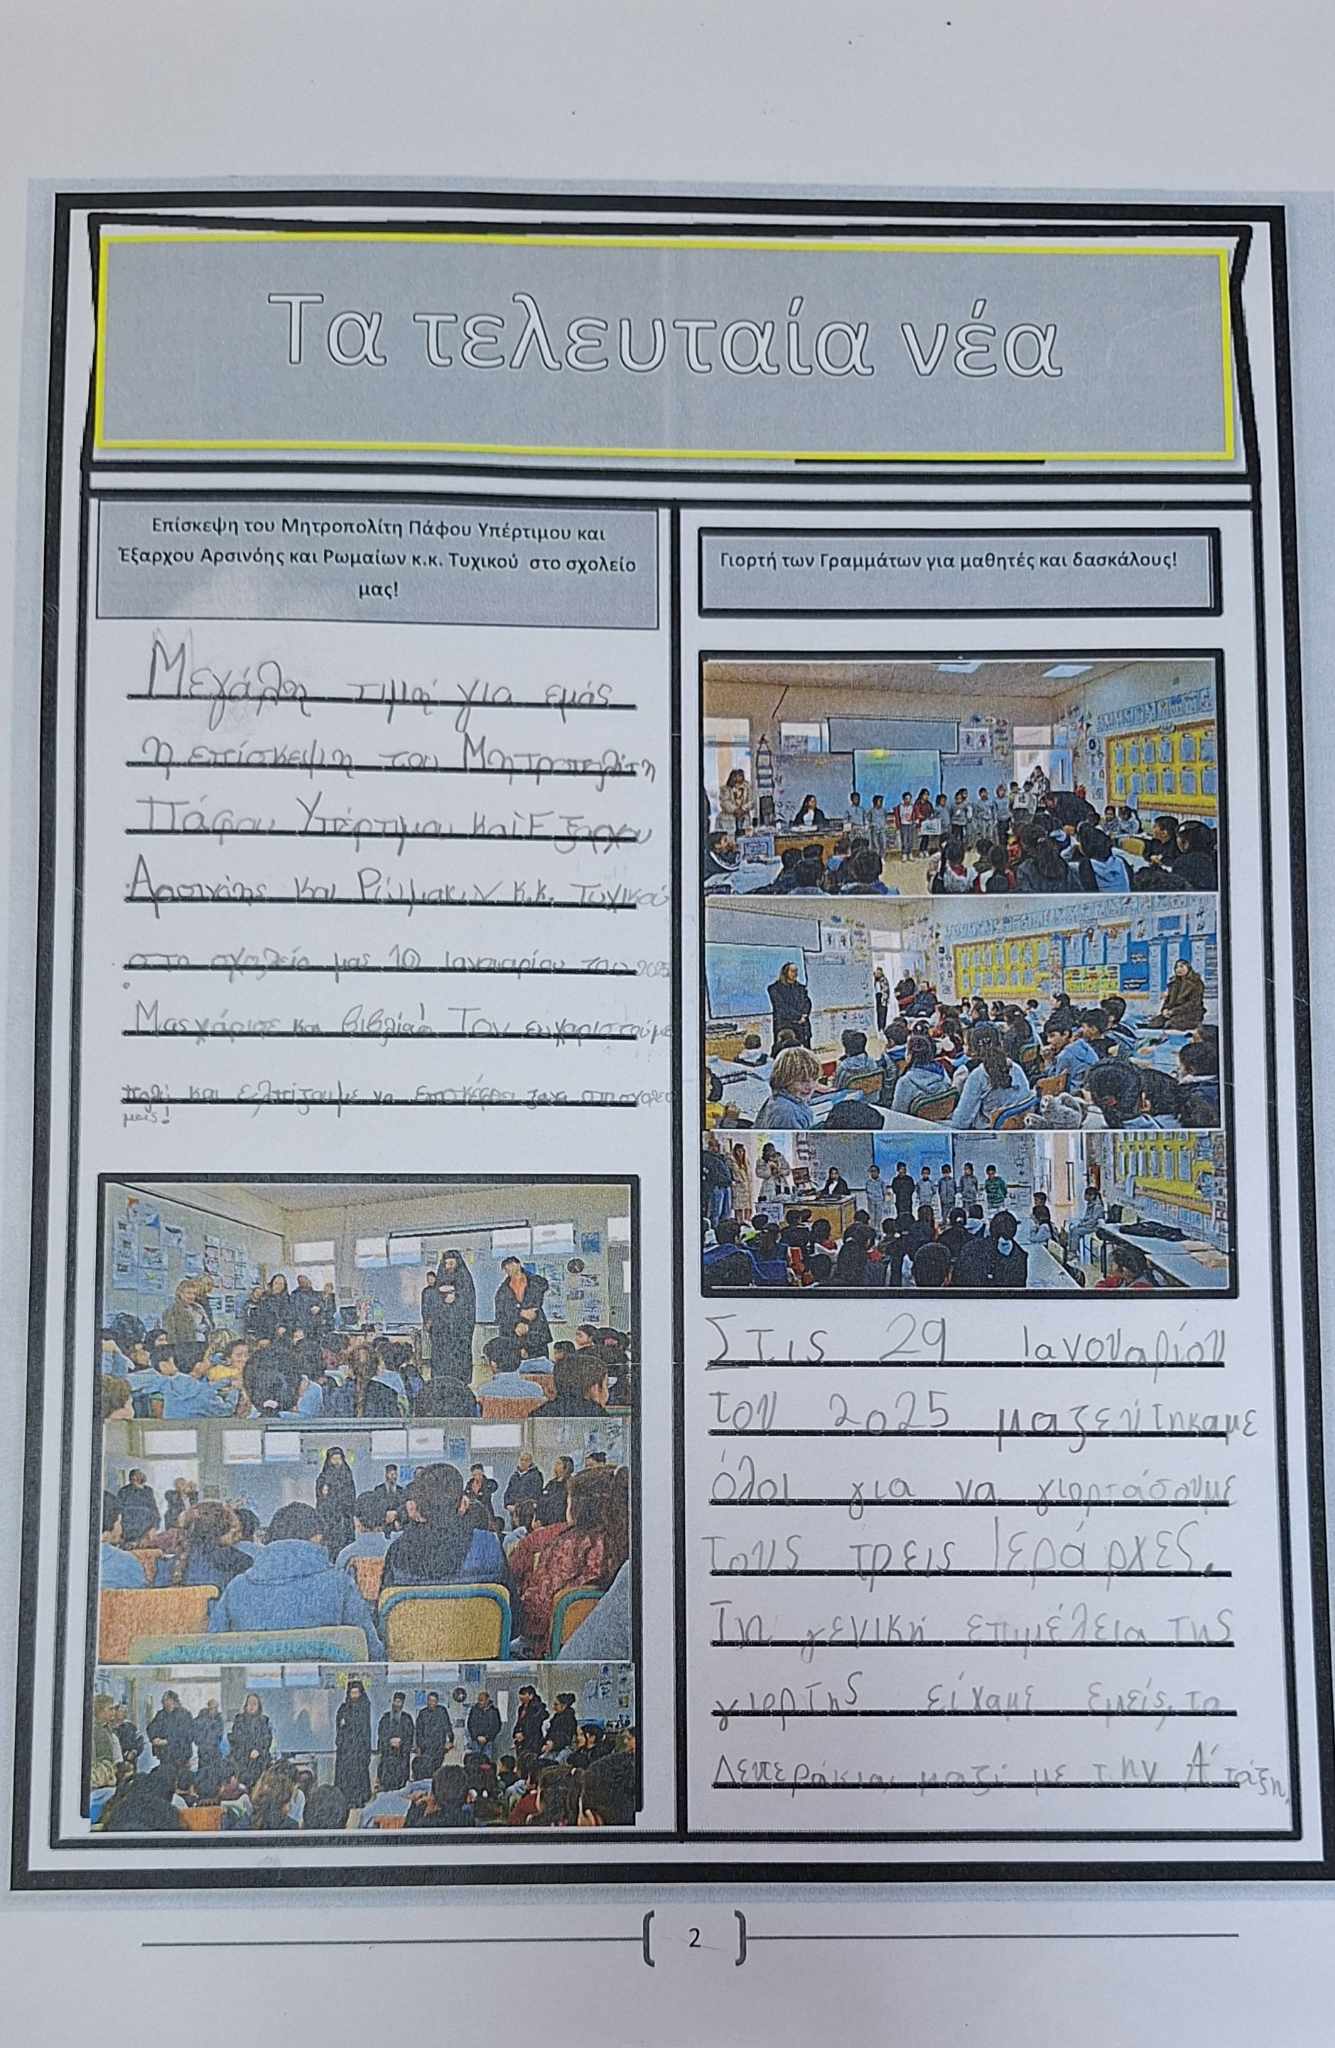 Τα τελευταία νέα
Επίσκεψη του Μητροπολίτη Πάφου Υπέρτιμου και
Έξαρχου Αρσινόης και Ρωμαίων κ.κ. Τυχικού στο σχολείο
μας!
Μεγάλη τιμή για εμάς
η επίσκεψη του Μητροπολίτη
Πάφου Υπέρτιμου και Εξαρχου
Αρσινόης και Ρώμαιων κ.κ. Τυχικού
στο σχολείο μας 10 Ιανουαρίου του 2025
Μας χάρισε και βιβλία! Τον ευχαριστούμε
πολύ και ελπίζουμε να επισκέφθει ξανα στο σχολείο
μας!
Γιορτή των Γραμμάτων για μαθητές και δασκάλους!
Στις 29 Ιανουαρίου
του 2025 μαζευτηκαμε
όλοι για να γιορτάσουμε
τους τρεις Ιεράρχες.
Τη γενική επιμέλεια της
γιορτης είχαμε εμείς, τα
Δευτεράκια, μαζί με την Α' τάξη.
2